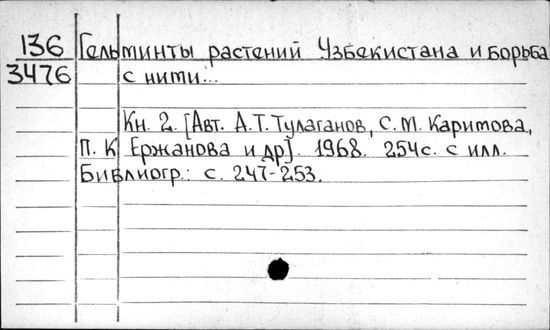 136 Гельминты растений Узбекистана и борьба
3476 с нити...
Кн. 2. [Авт. А.Т. Тулаганов, С.М. Каримова,
П. К Ержанова и др]. 1968. 254с. с илл.
Библиогр.: с. 247-253.